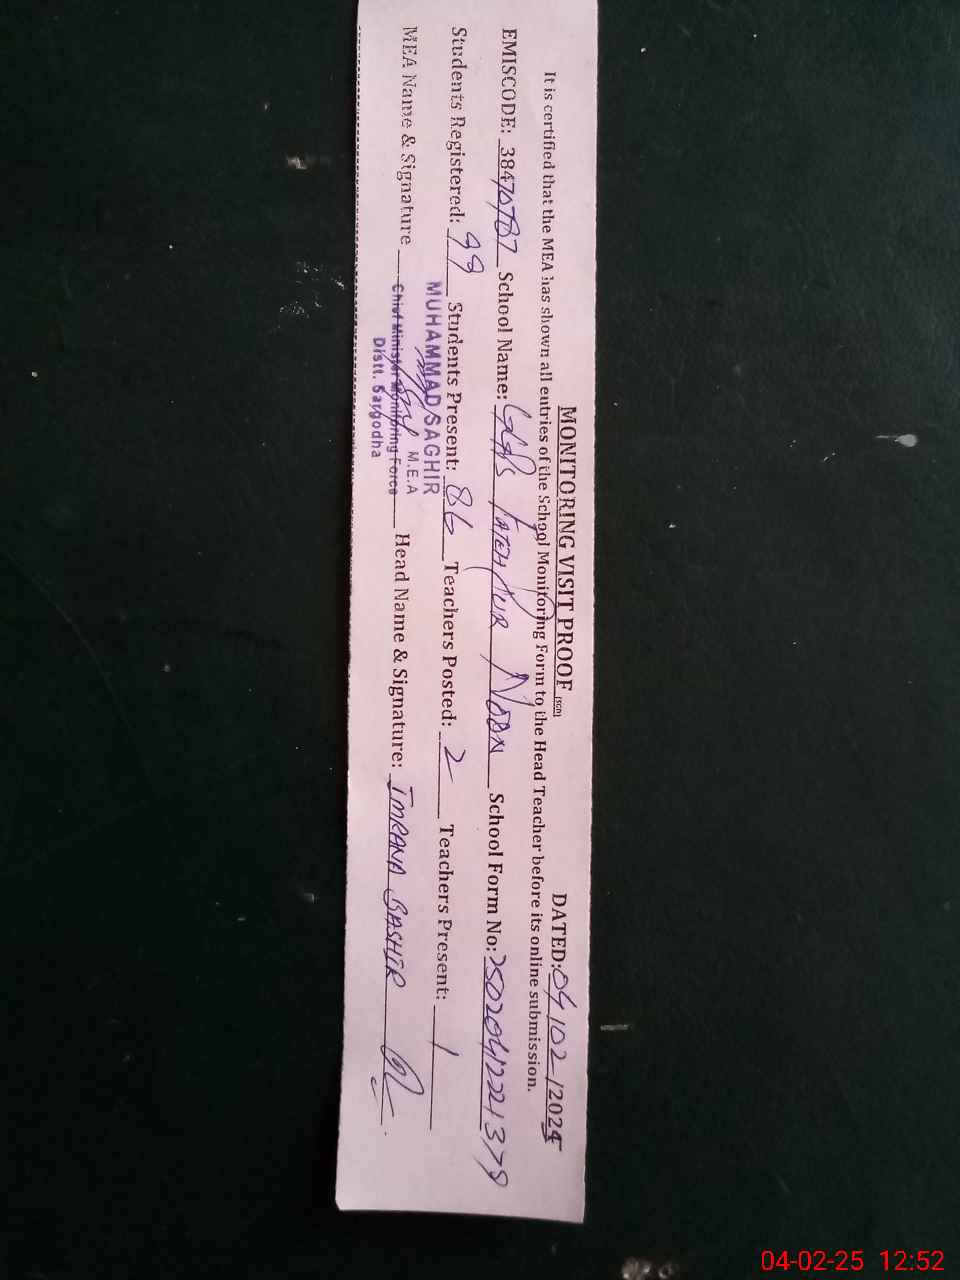 MONITORING VISIT PROOF [SGD] DATED: 04/02/2024
It is certified that the MEA has shown all entries of the School Monitoring Form to the Head Teacher before its online submission.
EMISCODE: School Name: FATEH PUR NOON School Form No:
Students Registered: 99 Students Present: 86 Teachers Posted: 2 Teachers Present: 1
MUHAMMAD SAGHIR
M.E.A
MEA Name & Signature Chief Minister Monitoring Force Head Name & Signature: IMRANA BASHIR
Distt. Sargodha
04-02-25 12:52